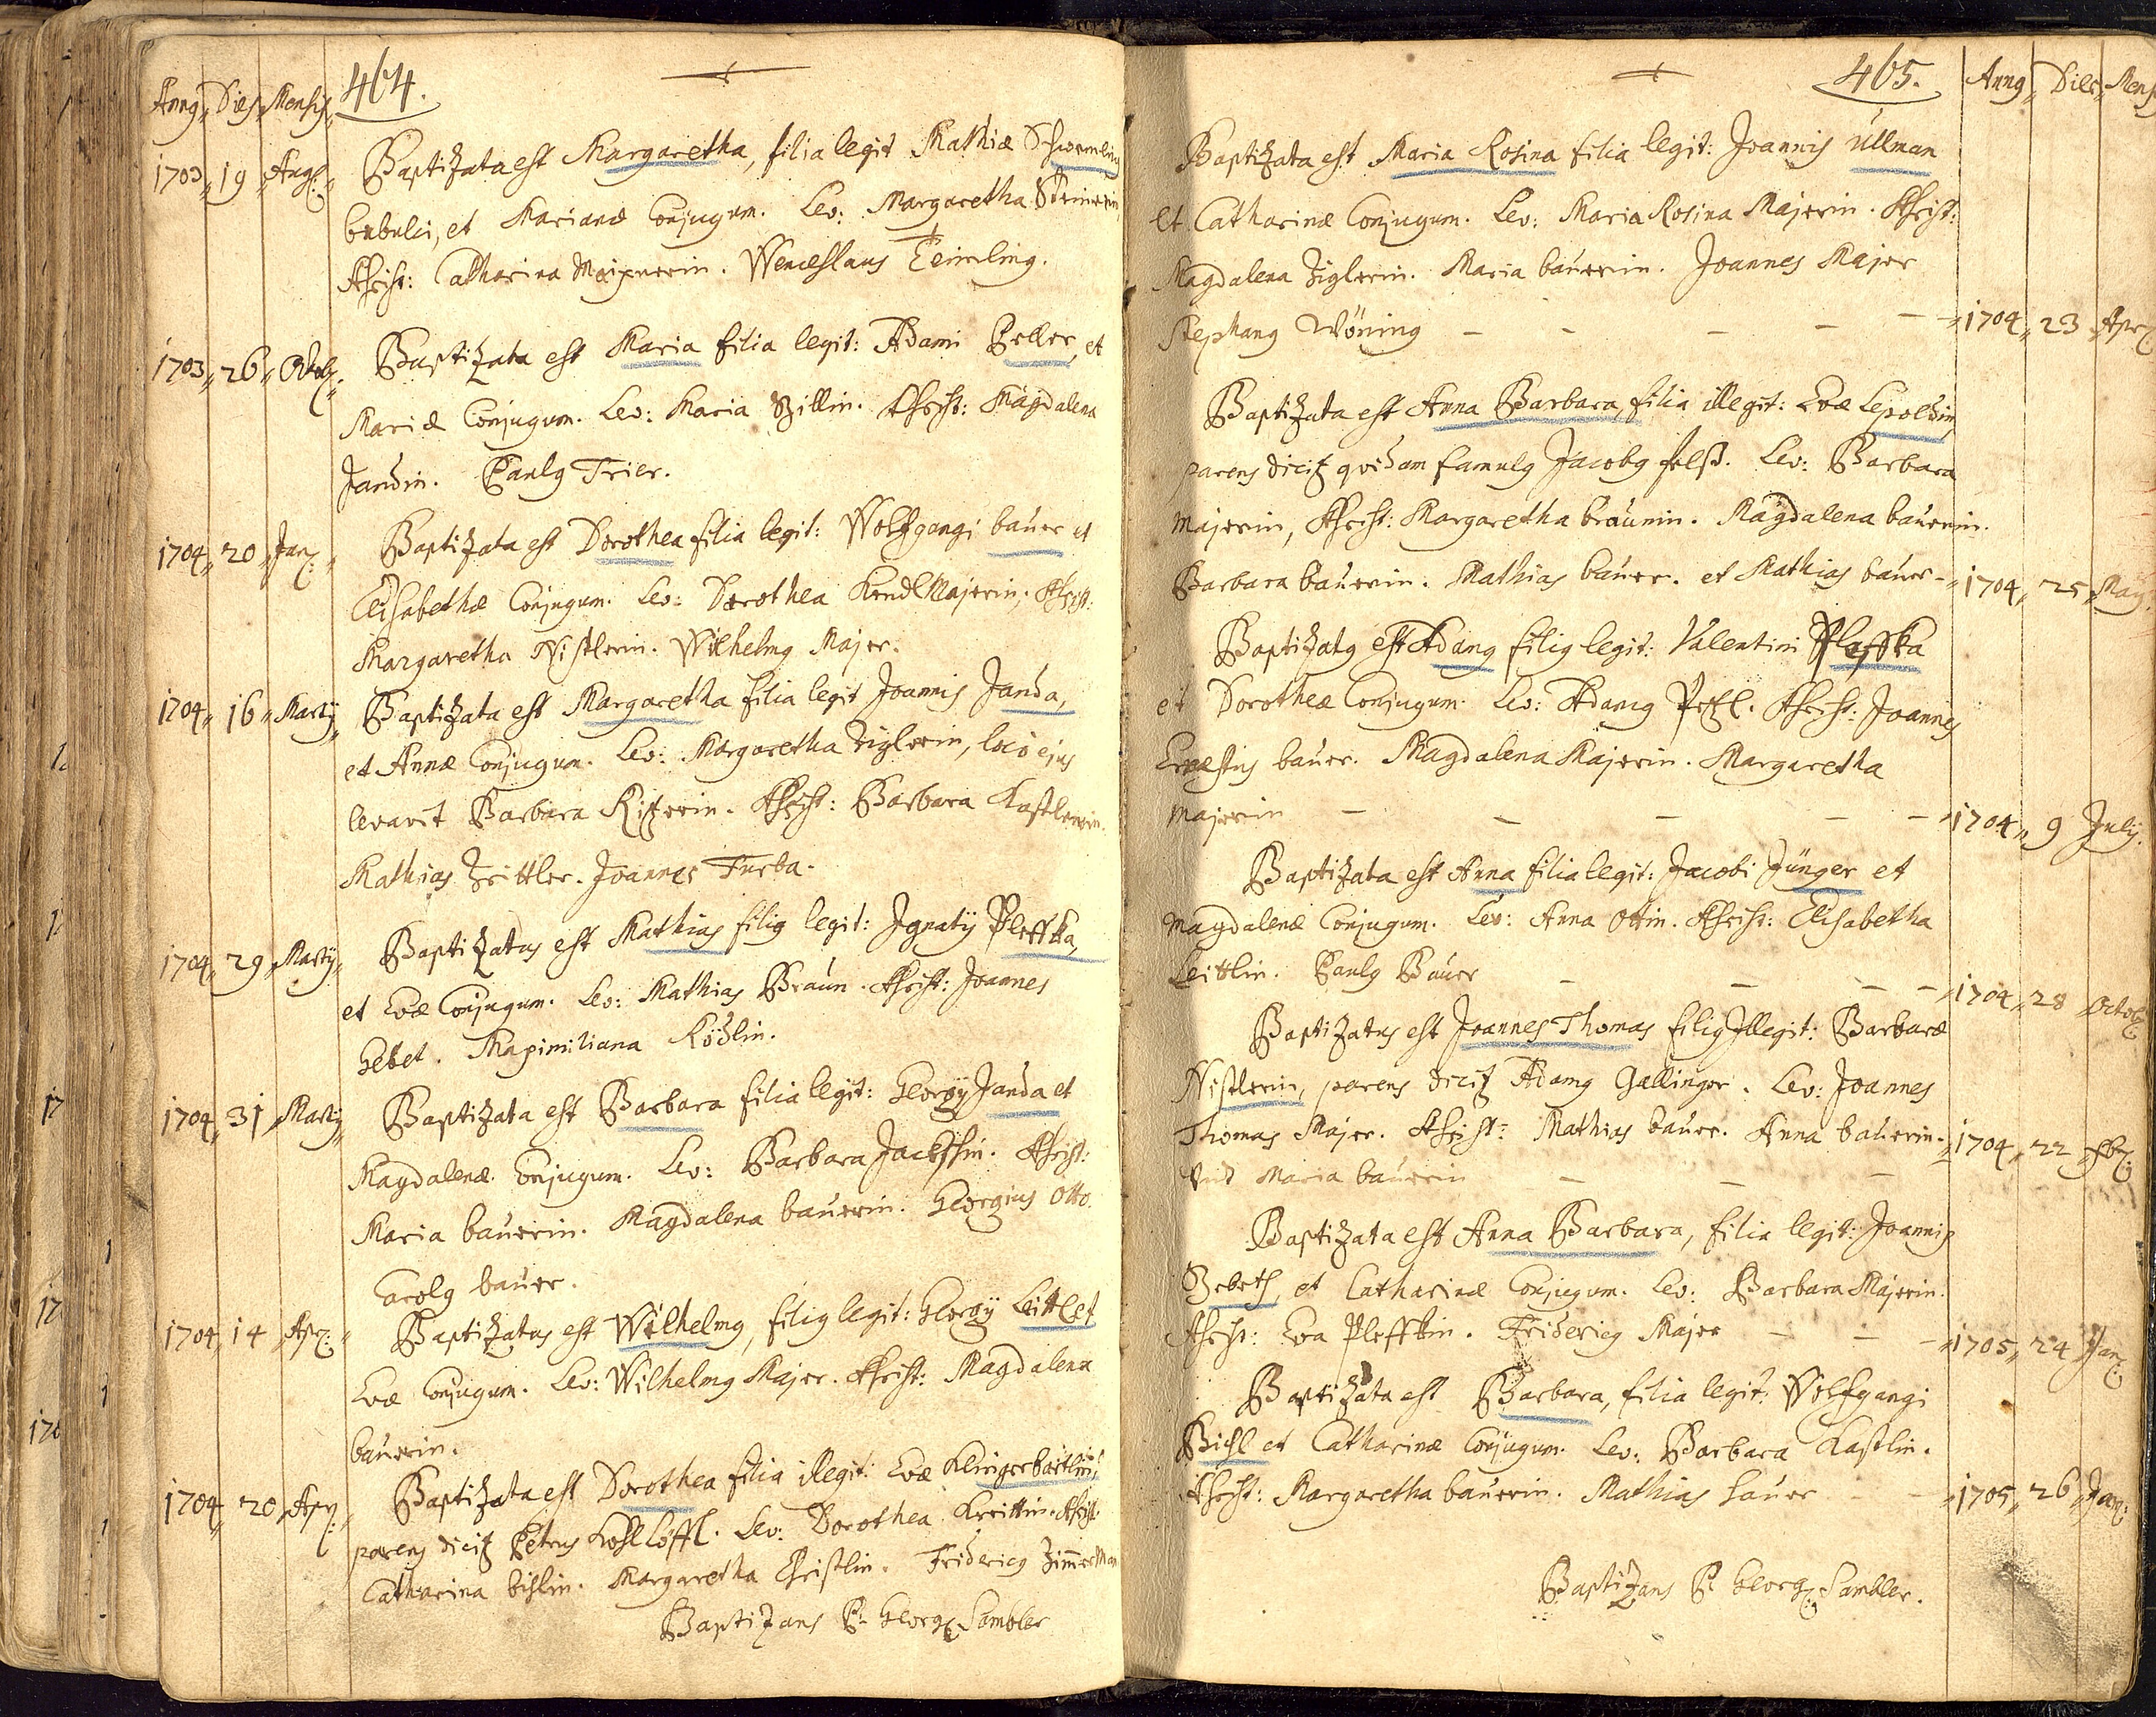 Anng Dies Mensis 464.
1703 19 Augs: Baptizata est Margaretha, filia legit Mathiæ
bubulci, et Marianæ Conjugum. Lev: Margaretha
Christ: Catharina. Wenceslaus Teimling.
1703 26 Octob: Baptizata est Maria filia legit: Adami Peller, et
Mariæ Conjugum. Lev: Maria Zillin. Christ: Magdalena
Jandin. Paulg Trier.
1704 20 Jan: Baptizata est Dorothea filia legit: Wolfgangi bauer et
Elisabethæ Conjugum. Lev: Dorothea KendlMajerin, Christ:
Margaretha Nistlerin. Wilhelmg Majer.
1704 16 Martij Baptizata est Margaretha filia legit Joannis Janda,
et Annæ Conjugum. Lev: Margaretha Ziglerin, loco ejus
levavit Barbara. Christ: Barbara Kastlerin.
Mathias Zrittler. Joannes Furba.
1704 29 Martij Baptizatus est Mathias filig legit: Ignatij Pleffka,
et Evæ Conjugum. Lev: Mathias Braun. Christ: Joannes
Gebet. Maximiliana Rödlin.
1704 31 Martij Baptizata est Barbara filia legit: Georgij Janda et
Magdalenæ Conjugum. Lev: Barbara. Christ:
Maria bauerin. Magdalena bauerin. Georgius Otto.
Carolg bauer.
1704 14 Apr: Baptizatus est Wilhelmg, filig legit: Georgij Leittl et
Evæ Conjugum. Lev: Wilhelmg Majer. Christ: Magdalena
bauerin.
1704 20 Apr: Baptizata est Dorothea filia illegit: Evæ Klingerbartlin,
parens dicitz Petrus Kohllöffl. Lev: Dorothea Krittin. Christ:
Catharina bihlin. Margaretha Christlin. Fridericg Zimmerman
Baptizans P: Georg: Sambler
465. Anng Dies Mens
Baptizata est Maria Rosina filia legit: Joannis Ullman
et Catharinæ Conjugum. Lev: Maria Rosina Majerin. Christ:
Magdalena Ziglerin. Maria bauerin. Joannes Majer
Stephang Wöning 1704 23 Apr:
Baptizata est Anna Barbara, filia illegit: Evæ Lepoldin,
parens dicitz quidam famulg Jacobg. Lev: Barbara
Majerin, Christ: Margaretha braunin. Magdalena bauerin.
Barbara bauerin. Mathias bauer. et Mathias bauer 1704 25 Maij
Baptizatg est Adamg filig legit: Valentini Pleffka
et Dorotheæ Conjugum. Lev: Adamg. Christ: Joannes
Ernestus bauer. Magdalena Majerin. Margaretha
Majerin 1704 9 Julij.
Baptizata est Anna filia legit: Jacobi Jünger et
Magdalenæ Conjugum. Lev: Anna Ottin. Christ: Elisabetha
Leittlin. Paulg Bauer 1704 28 Octob:
Baptizatus est Joannes Thomas filig Illegit: Barbaræ
Nistlerin, parens dicitz Adamg Gallinger. Lev: Joannes
Thomas Majer. Christ: Mathias bauer. Anna bauerin. 1704 22
Und Maria bauerin
Baptizata est Anna Barbara, filia legit: Joannis
et Catharinæ Conjugum. Lev: Barbara Majerin.
Christ: Eva Pleffkin. Fridericg Majer 1705 24 Jan:
Baptizata est Barbara, filia legit: Wolfgangi
Bihl et Catharinæ Conjugum. Lev: Barbara Kastlin.
Christ: Margaretha bauerin. Mathias bauer 1705 26 Jan:
Baptizans P: Georg: Sambler.